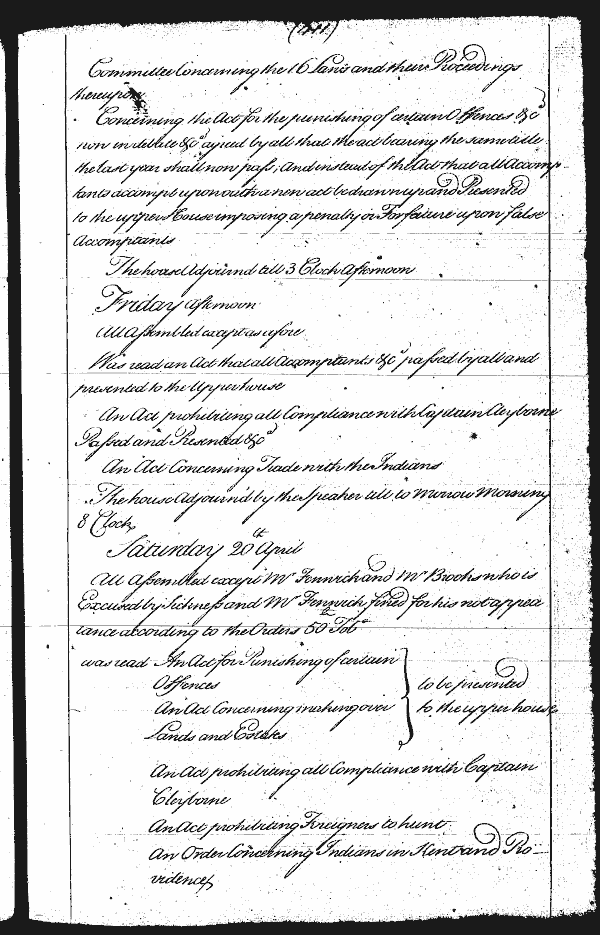 Committee Concerning the 16 Laws and their Proceedings
thereupon
Concerning the Act for the punishing of certain Offences &cᵃ
now in debate &cᵃ agreed by all that the act bearing the same title
the last year shall now pass, And instead of the Act that all Accomp
tants accompt upon oath a new act be drawn up and Presented
to the upper House imposing a penalty or Forfaiture upon false
Accomptants
The house Adjourn'd till 3 Clock Afternoon
Friday Afternoon
All Assembled except as afore
Was read an Act that all Accomptants &cᵃ passed by all and
presented to the Upper house
An Act prohibiting all Compliance with Captain Cleyborne
Passed and Presented &cᵃ
An Act Concerning Trade with the Indians
The house Adjourn'd by the Speaker till to Morrow Morning
8 Clock,
Saturday 20th April
All Assembled except Mr Fennwick and Mr Brooks who is
Excused by Sickness and Mr Fennwick fined for his not appea
rance according to the Orders 50lb Tobo
was read An Act for Punishing of certain
Offences
An Act Concerning making over
Lands and Estates
to be presented
to the upper house
An Act prohibiting all Compliance with Captain
Cleyborne
An Act prohibiting Foreigners to hunt
An Order Concerning Indians in Kent and Pro-
vidence,